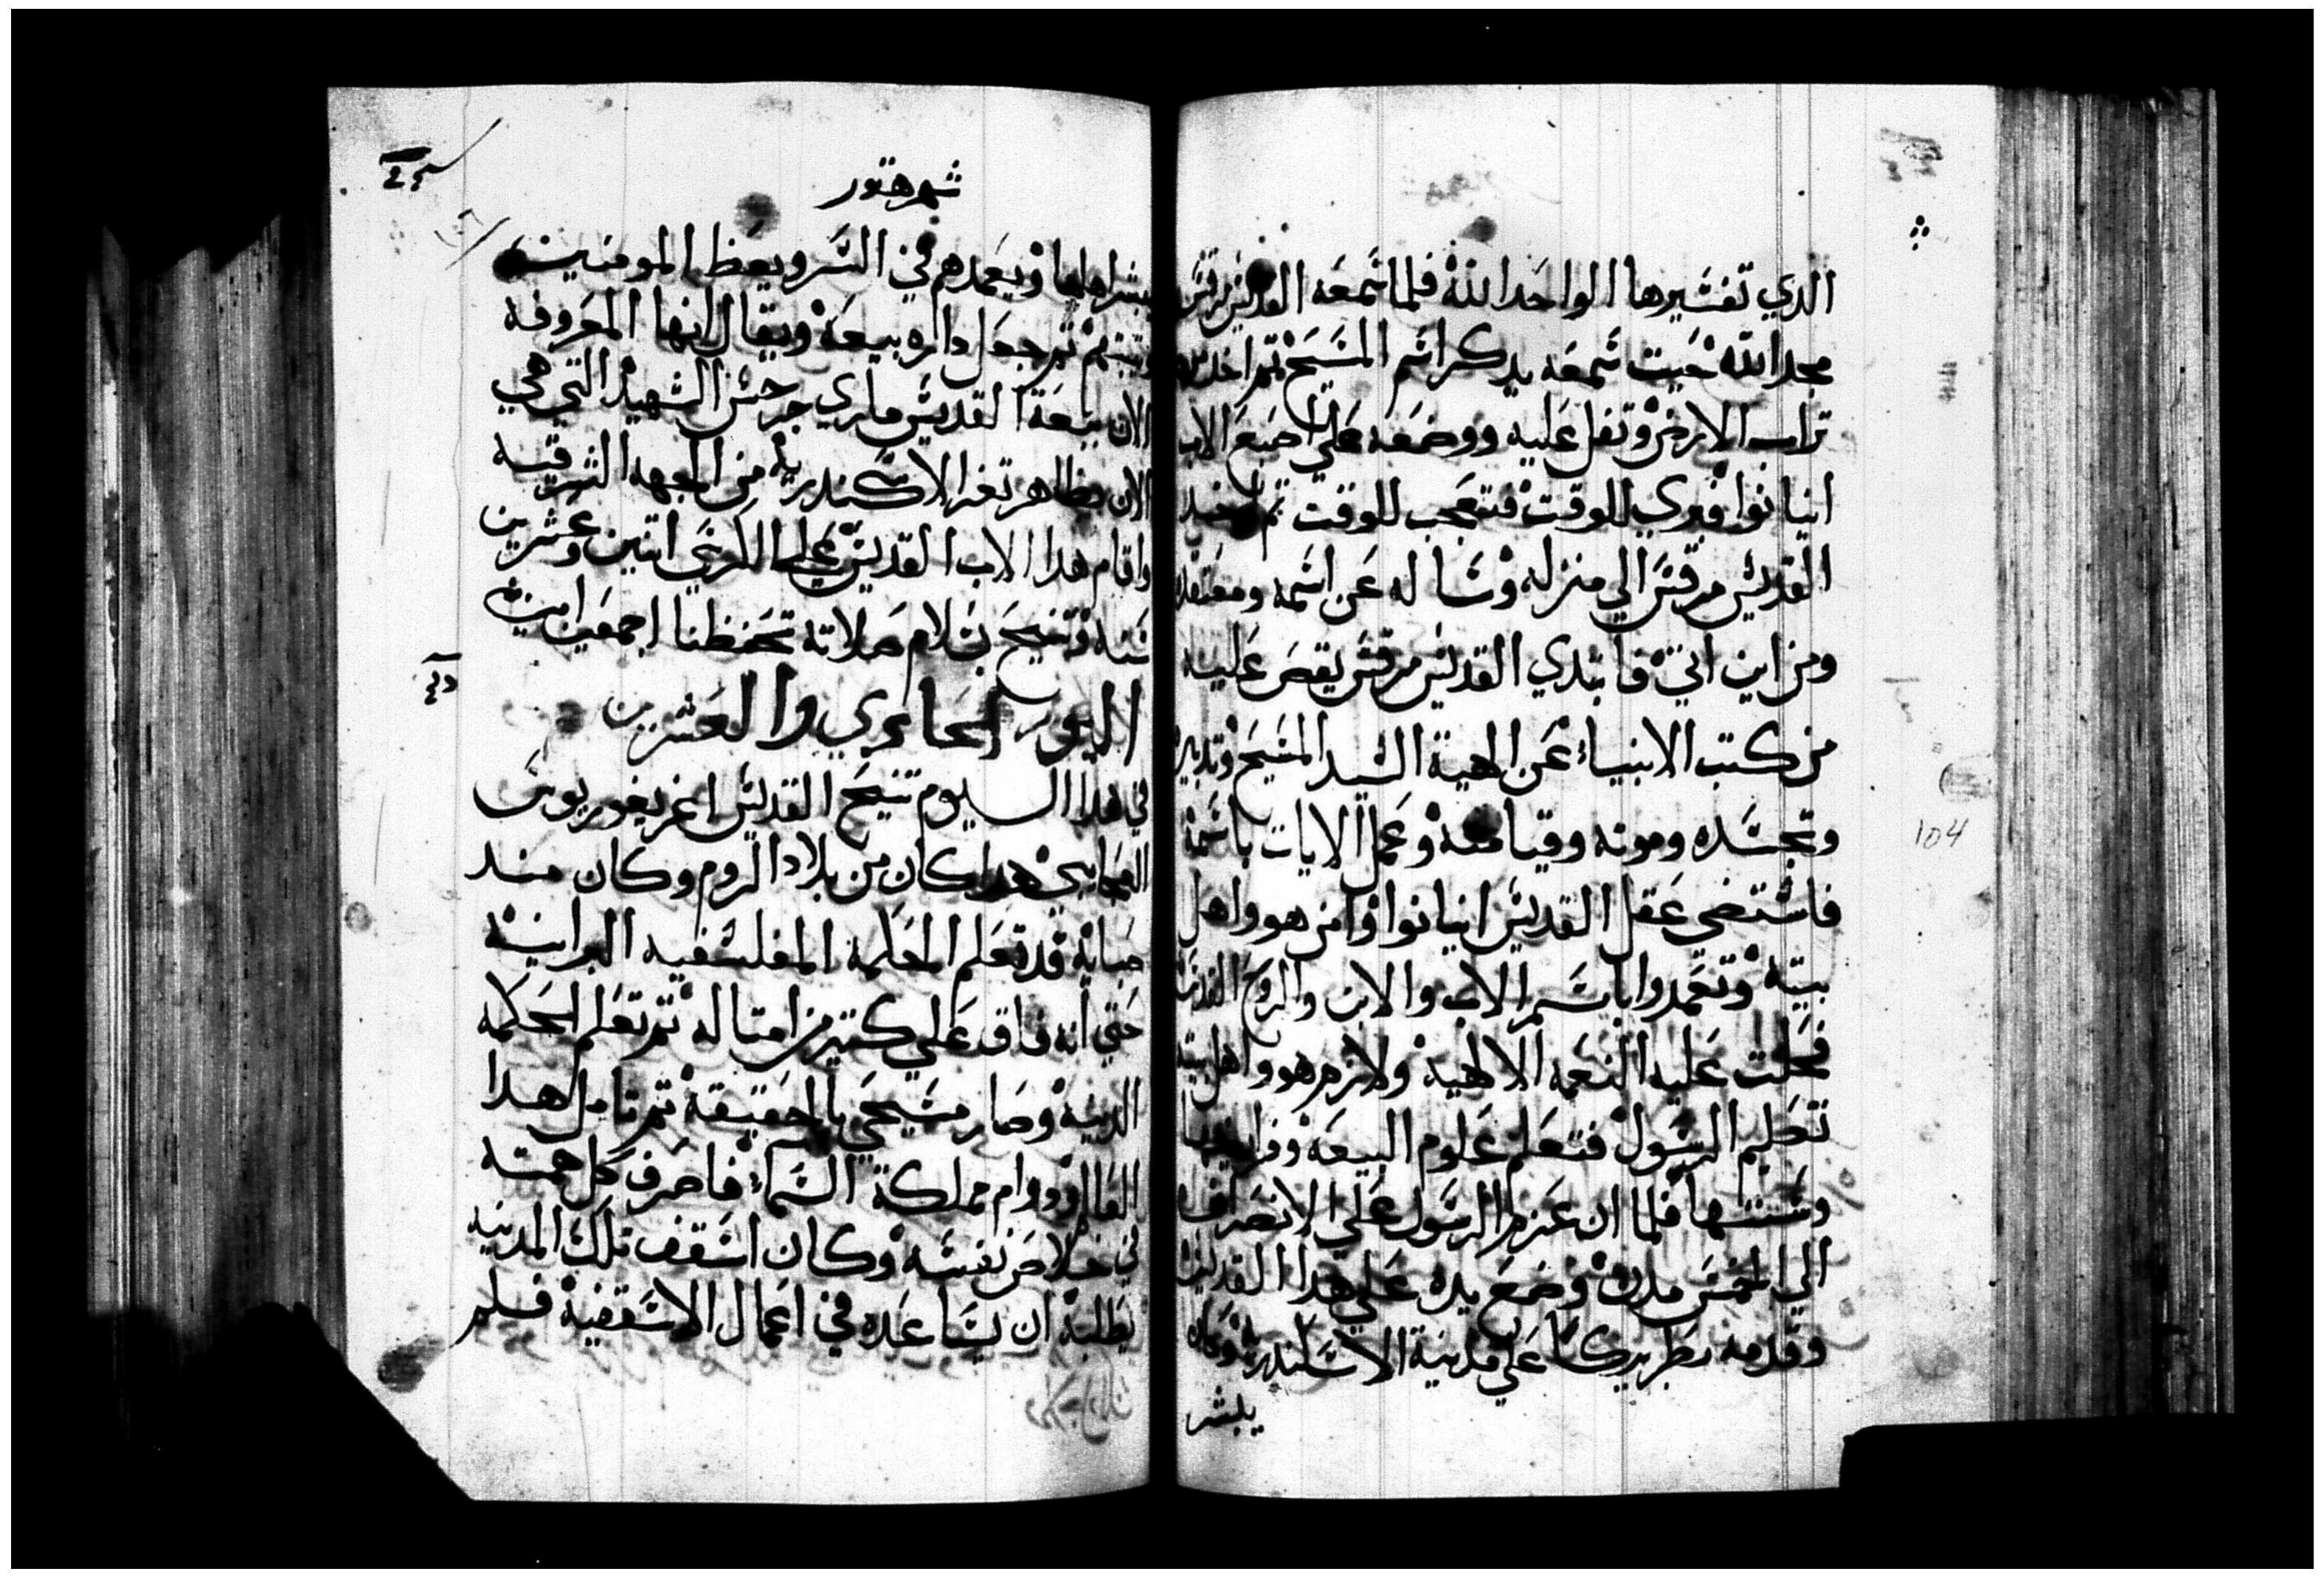 الدي تفسيرها الواحد الله فلما سمعه القديس مرقس
مجد الله حيت سمعه يدكر اسم المسيح تم اخد من
تراب الارض وتفل عليه ووضعه علي اصبع الاب
انيانوا فبري للوقت فتعجب للوقت تم اخد
القديس مرقس الي منزله وساله عن اسمه ومعتقده
ومن اين اتي فابتدي القديس مرقس يقص عليه
من كتب الانبياء عن الهية السيد المسيح وتدبيره
وتجسده وموته وقيامته وعمل الايات باسمه
فاستضي عقل القديس انيانوا وامن هو واهل
بيته وتعمدوا باسم الاب والابن والروح القدس
فحلت عليه النعمه الالهيه ولازم هو واهل بيته
تعليم الرسول فتعلم علوم البيعه وفرايضها
وسننها فلما ان عزم الرسول علي الانصراف
الي الخمس مدن وضع يده علي هدا القديس
وقدمه بطريركا علي مدينة الاسكندريه وكان
يبشر
104
شهر هتور
يبشر اهلها ويعمدهم في السر ويعظ المومنين
ويتبتهم تم جعل داره بيعه ويقال انها المعروفه
الان ببيعة القديس ماري جرجس الشهيد التي هي
الان بظاهر تغر الاسكندريه من الجهه الشرقيه
واقام هدا الاب القديس علي الكرسي اتنين وعشرين
سنه وتنيح بسلام صلاته تحفظنا اجمعين امين
اليوم الحادي والعشرين
في هدا اليوم تنيح القديس اغريغوريوس
العجايبي هدا كان من بلاد الروم وكان مند
صباه قد تعلم الحكمه الفلسفيه البرانيه
حتي انه فاق علي كتير من امتاله تم تعلم الحكمه
الدينيه وصار مسيحي بالحقيقه تم تامل هدا
العالم ودوام مملكة السماء فاصرف كل همته
في خلاص نفسه وكان اسقف تلك المدينه
يطلبه ان يساعده في اعمال الاسقفيه فلم